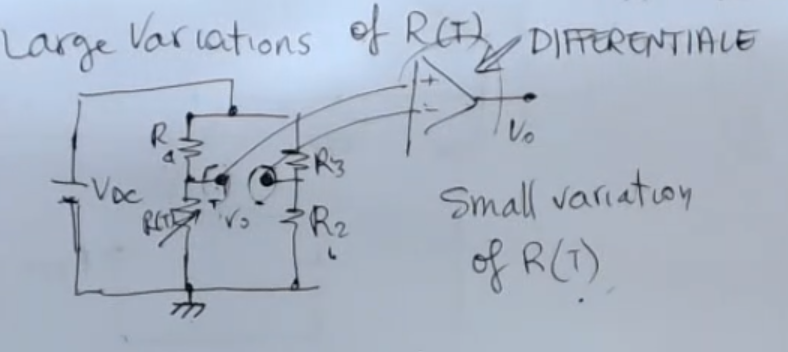 Large Variations of R(T)
DIFFERENTIALE
+
-
Vo
R
R3
VDC
R(T)
+
Vo
-
R2
Small variation
of R(T)